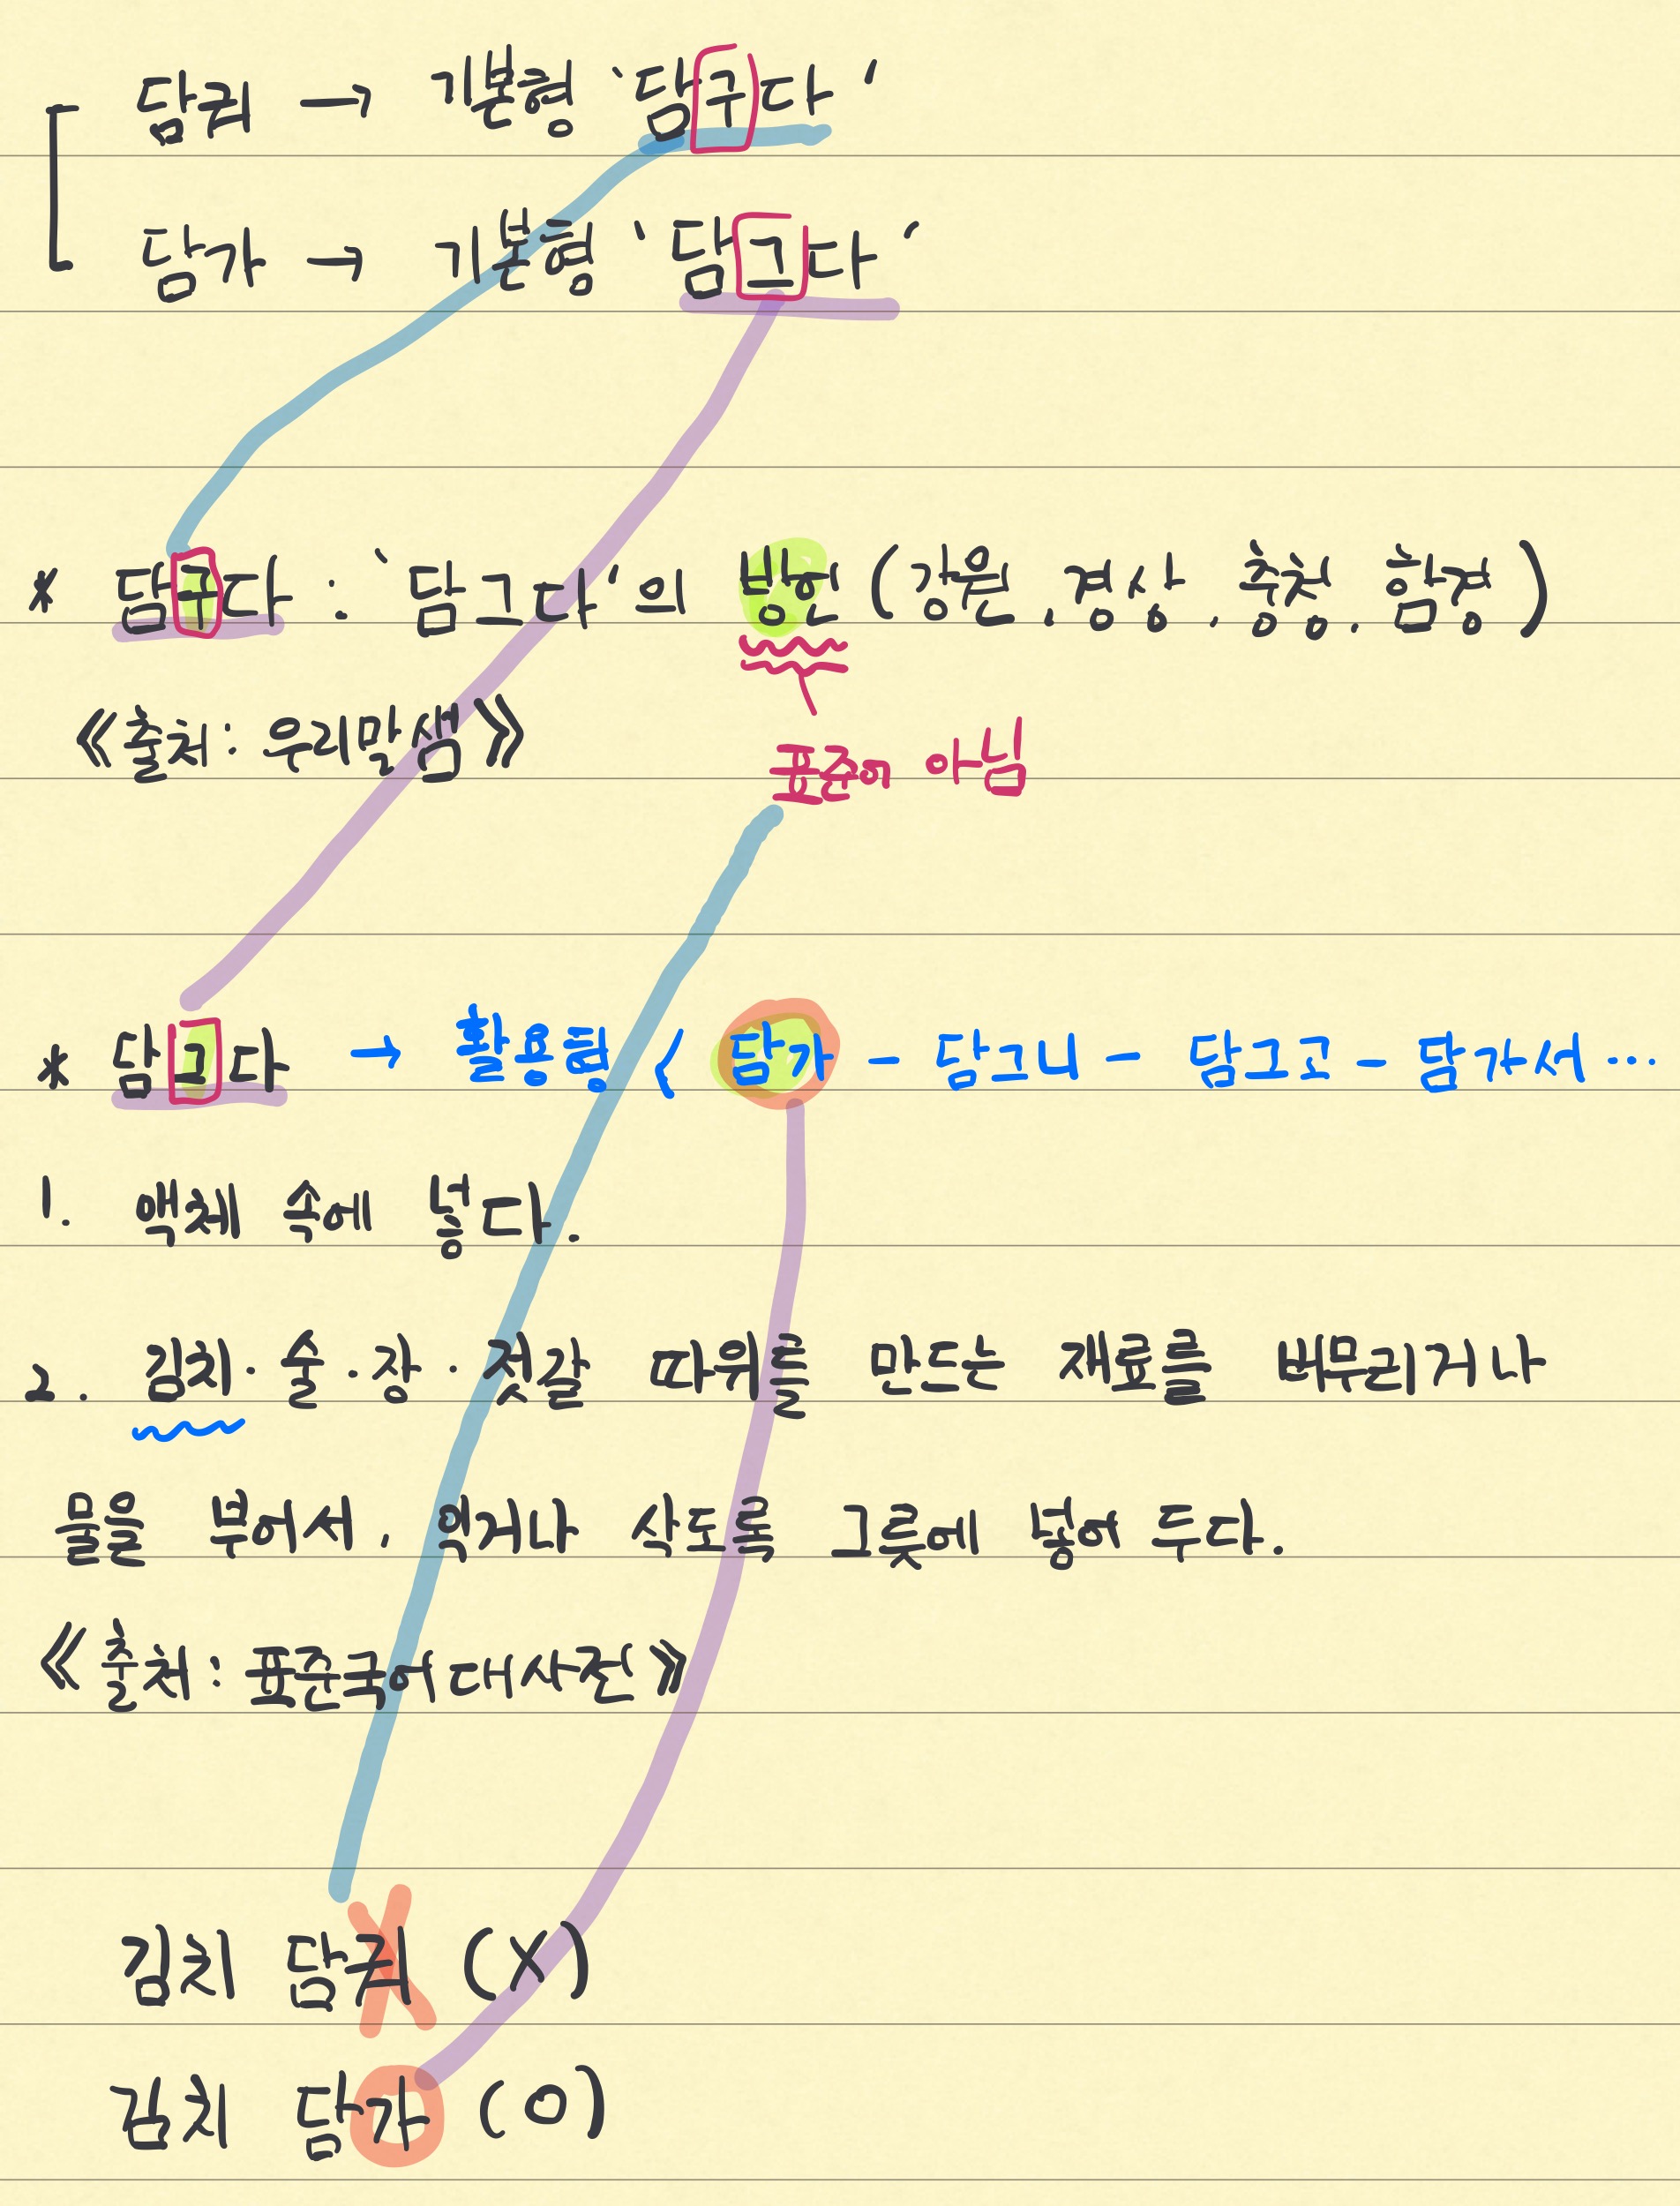 담궈 → 기본형 '담구다'
담가 → 기본형 '담그다'
* 담구다 : '담그다'의 방언 (강원, 경상, 충청, 함경)
《출처: 우리말샘》
표준어 아님
* 담그다 → 활용형 ( 담가 - 담그니 - 담그고 - 담가서 …
1. 액체 속에 넣다.
2. 김치·술·장·젓갈 따위를 만드는 재료를 버무리거나
물을 부어서, 익거나 삭도록 그릇에 넣어 두다.
《출처: 표준국어대사전》
김치 담궈 (X)
김치 담가 (O)